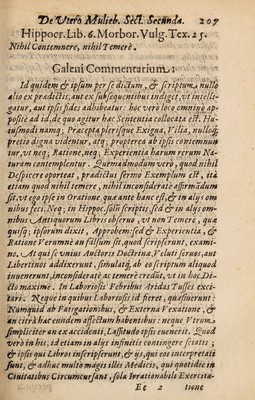 De Utero Mulieb. Sect. Secunda. 207
Hippocr. Lib. 6. Morbor. Vulg. Tex. 25.
Nihil Contemnere, nihil Temerè.
Galeni Commentarium:
Id quidem & ipsum per se dictum, & scriptum, nullo
alio ex praedictis, aut ex subsequentibus indiget, vt intelli-
gatur, aut ipsi fides adhibeatur: hoc vero loco omninò ap-
positè ad id, de quo agitur hac Sententia collocata est. Hu-
iusmodi namq; Praecepta plerisque Exigua, Vilia, nulloq;
pretio digna videntur, atq; propterea ab ipsis contemnun
tur, vt neq; Ratione, neq; Experientia harum rerum Na-
turam contemplentur. Quemadmodum verò, quod nihil
Despicere oporteat, praedictus sermo Exemplum est, ità
etiam quod nihil temere, nihil inconsideratè affirmandum
sit, vt ego ipse in Oratione, quae ante hanc est, & in alijs om
nibus feci. Neq; in Hippoc. solis scriptis, sed & in alijs om-
nibus Antiquorum Libris obseruo, vt non Temerè, quae
quisq; ipsorum dixit, Approbem: sed & Experientia, &
Ratione Verumnè an falsum sit, quod scripserunt, exami-
no. At qui se vnius Auctoris Doctrina, Veluti seruos, aut
Libertinos addixerunt, simulatq; ab eo scriptum aliquod
inuenerunt, inconsideratè ac temerè credũt, vt in hoc Di-
cto maximè. In Laboriosis Febribus Aridas Tusses exci-
tari. Neque in quibus Laboriosis id fieret, quaesiuerunt:
Numquid ab Fatigationibus, & Externa Vexatione, &
an citrà hac eundem affectum habentibus: neque Vtrum
simpliciter an ex accidenti, Lassitudo ipsis euenerit. Quod
verò in his, id etiam in alijs infinitis contingere sciatis;
& ipsi qui Libros inscripserunt, & ijs, qui eos interpretati
sunt, & adhuc multò magis illis Medicis, qui quotidiè in
Ciuitatibus Circumcursant, sola Irrationabili Exercita-
Ee 2 tione